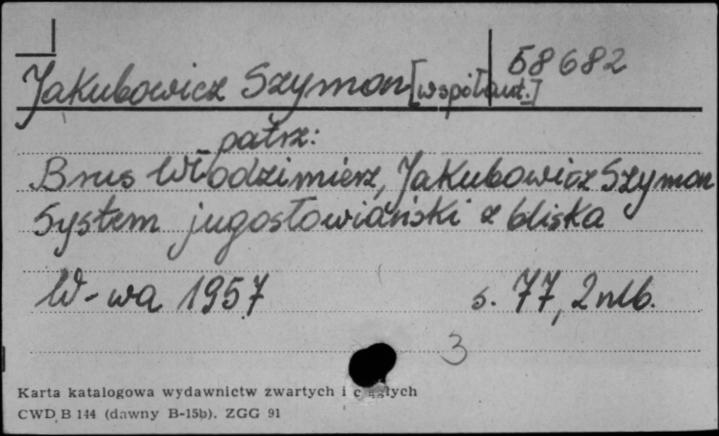 58682
Jakubowicz Szymon [współaut.]
patrz:
Brus Włodzimierz, Jakubowicz Szymon
System jugosłowiański z bliska
W-wa 1957 s. 77, 2 nlb.
3
Karta katalogowa wydawnictw zwartych i ciągłych
CWD B 144 (dawny B-15b). ZGG 91